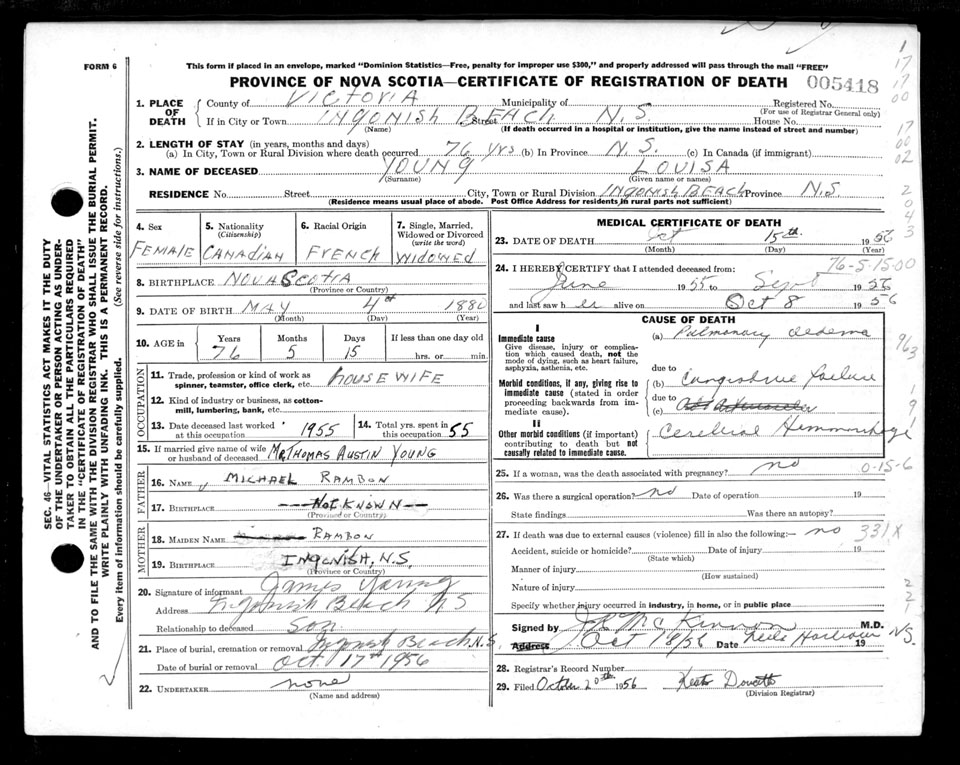 FORM 6
This form if placed in an envelope, marked "Dominion Statistics—Free, penalty for improper use $300," and properly addressed will pass through the mail "FREE"
PROVINCE OF NOVA SCOTIA—CERTIFICATE OF REGISTRATION OF DEATH
005418
1. PLACE OF DEATH
County of VICTORIA Municipality of Registered No.
(For use of Registrar General only)
If in City or Town INGONISH BEACH N.S. Street House No.
(Name) (If death occurred in a hospital or institution, give the name instead of street and number)
2. LENGTH OF STAY (in years, months and days)
(a) In City, Town or Rural Division where death occurred 76 yrs (b) In Province N.S. (c) In Canada (if immigrant)
3. NAME OF DECEASED YOUNG LOUISA
(Surname) (Given name or names)
RESIDENCE No. Street City, Town or Rural Division INGONISH BEACH Province N.S.
(Residence means usual place of abode. Post Office Address for residents in rural parts not sufficient)
4. Sex
FEMALE
5. Nationality
(Citizenship)
CANADIAN
6. Racial Origin
FRENCH
7. Single, Married, Widowed or Divorced
(write the word)
WIDOWED
8. BIRTHPLACE NOVA SCOTIA
(Province or Country)
9. DATE OF BIRTH MAY 4th 1880
(Month) (Day) (Year)
10. AGE in
Years Months Days If less than one day old
76 5 15 hrs. or min.
OCCUPATION
11. Trade, profession or kind of work as spinner, teamster, office clerk, etc. HOUSEWIFE
12. Kind of industry or business, as cotton-mill, lumbering, bank, etc.
13. Date deceased last worked at this occupation 1955
14. Total yrs. spent in this occupation 55
15. If married give name of wife or husband of deceased Mr THOMAS AUSTIN YOUNG
FATHER
16. NAME MICHAEL RAMBON
17. BIRTHPLACE NOT KNOWN
(Province or Country)
MOTHER
18. MAIDEN NAME RAMBON
19. BIRTHPLACE INGONISH, N.S.
(Province or Country)
20. Signature of informant James Young
Address Ingonish Beach N S
Relationship to deceased son
21. Place of burial, cremation or removal Ingonish Beach, N.S.
Date of burial or removal Oct 17th 1956
22. UNDERTAKER none
(Name and address)
MEDICAL CERTIFICATE OF DEATH
23. DATE OF DEATH Oct 15th. 1956
(Month) (Day) (Year)
76-5-15-00
24. I HEREBY CERTIFY that I attended deceased from:
June 1955 to Sept 1956
and last saw her alive on Oct 8 1956
CAUSE OF DEATH
I
Immediate cause
Give disease, injury or complication which caused death, not the mode of dying, such as heart failure, asphyxia, asthenia, etc.
(a) Pulmonary oedema
due to
Morbid conditions, if any, giving rise to immediate cause (stated in order proceeding backwards from immediate cause).
(b) Congestive failure
due to
(c)
II
Other morbid conditions (if important) contributing to death but not causally related to immediate cause.
Cerebral Hemmorhage
25. If a woman, was the death associated with pregnancy? no
0-15-6
26. Was there a surgical operation? no Date of operation 19
State findings Was there an autopsy?
27. If death was due to external causes (violence) fill in also the following:— no 331X
Accident, suicide or homicide? Date of injury 19
(State which)
Manner of injury
(How sustained)
Nature of injury
Specify whether injury occurred in industry, in home, or in public place
Signed by McKinnon M.D.
Address Oct 18/56 Date Neils Harbour 19 N.S.
28. Registrar's Record Number
29. Filed October 20th 1956
(Division Registrar)
SEC. 46—VITAL STATISTICS ACT MAKES IT THE DUTY
OF THE UNDERTAKER OR PERSON ACTING AS UNDER-
TAKER TO OBTAIN ALL THE PARTICULARS REQUIRED
IN THE "CERTIFICATE OF REGISTRATION OF DEATH"
AND TO FILE THE SAME WITH THE DIVISION REGISTRAR WHO SHALL ISSUE THE BURIAL PERMIT.
WRITE PLAINLY WITH UNFADING INK. THIS IS A PERMANENT RECORD.
Every item of information should be carefully supplied. (See reverse side for instructions.)